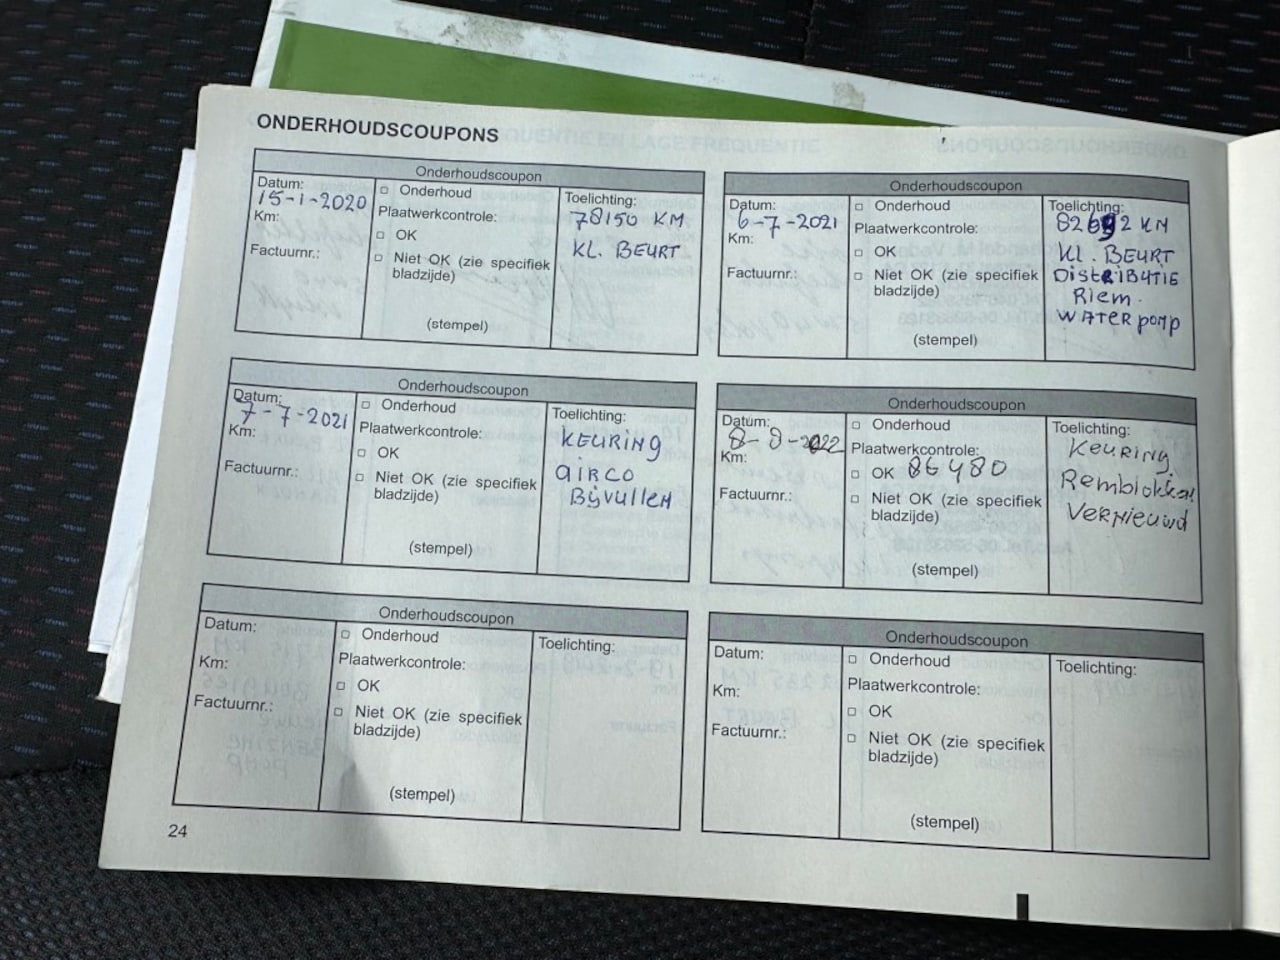 ONDERHOUDSCOUPONS
Onderhoudscoupon
Datum:
15-1-2020
Km:
Factuurnr.:
Onderhoud
Plaatwerkcontrole:
OK
Niet OK (zie specifiek
bladzijde)
(stempel)
Toelichting:
78150 KM
KL. BEURT
Onderhoudscoupon
Datum:
6-7-2021
Km:
Factuurnr.:
Onderhoud
Plaatwerkcontrole:
OK
Niet OK (zie specifiek
bladzijde)
(stempel)
Toelichting:
KM
KL. BEURT
DistRiBUTiE
Riem.
WATER pomp
Onderhoudscoupon
Datum:
7-7-2021
Km:
Factuurnr.:
Onderhoud
Plaatwerkcontrole:
OK
Niet OK (zie specifiek
bladzijde)
(stempel)
Toelichting:
KEURING
AIRCO
Bijvullen
Onderhoudscoupon
Datum:
8-8-2022
Km:
Factuurnr.:
Onderhoud
Plaatwerkcontrole:
OK 86480
Niet OK (zie specifiek
bladzijde)
(stempel)
Toelichting:
KEURING
Remblokken
Vernieuwd
Onderhoudscoupon
Datum:
Km:
Factuurnr.:
Onderhoud
Plaatwerkcontrole:
OK
Niet OK (zie specifiek
bladzijde)
(stempel)
Toelichting:
Onderhoudscoupon
Datum:
Km:
Factuurnr.:
Onderhoud
Plaatwerkcontrole:
OK
Niet OK (zie specifiek
bladzijde)
(stempel)
Toelichting:
24